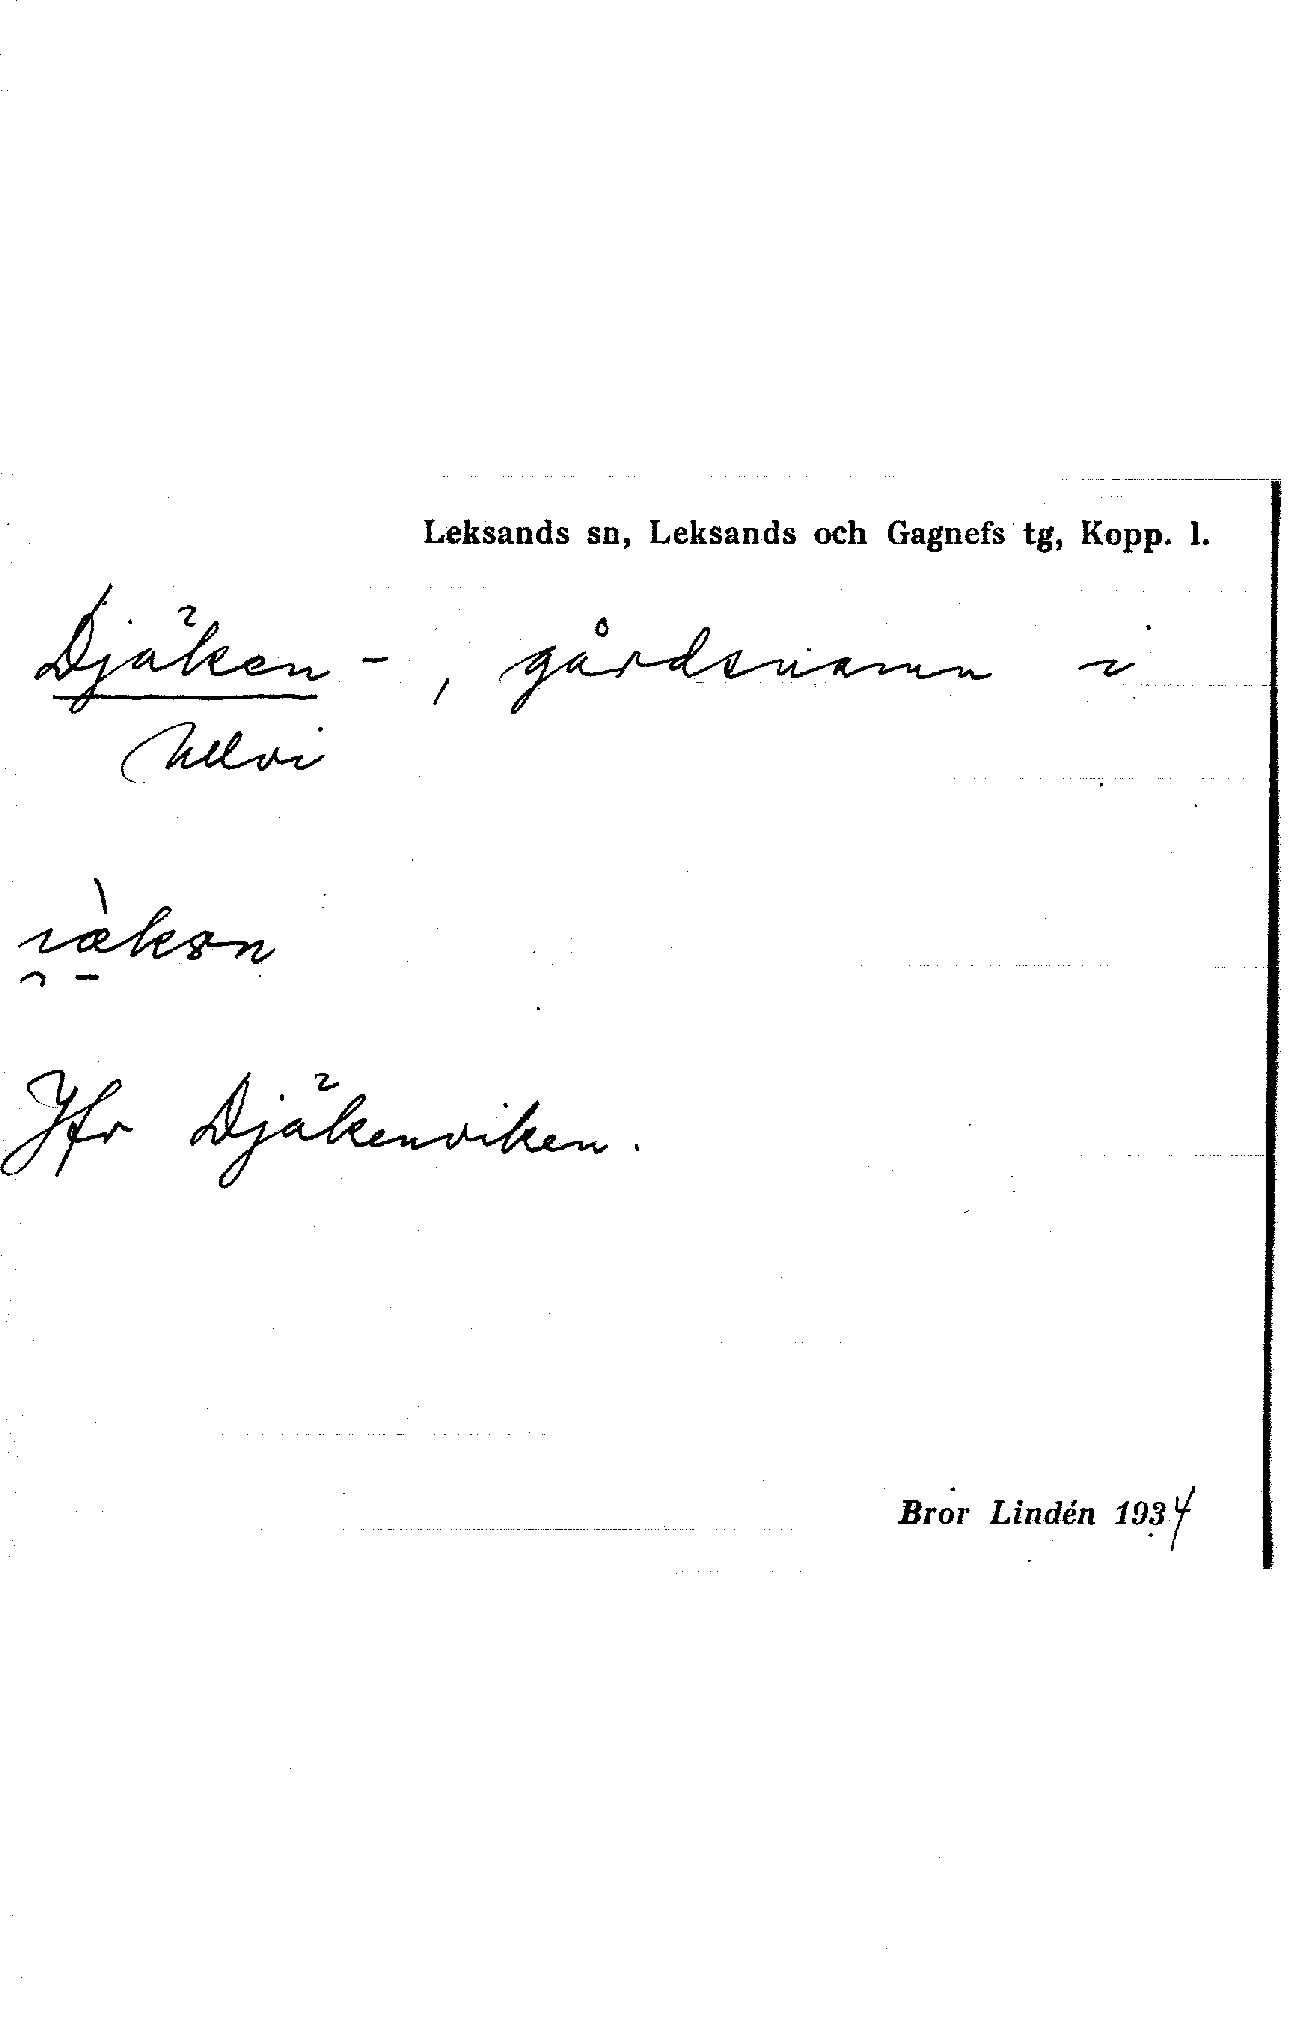 Leksands sn, Leksands och Gagnefs tg, Kopp. l.
Djäken-, gårdsnamn i
Ullvi
Jfr Djäkenviken.
Bror Lindén 1934